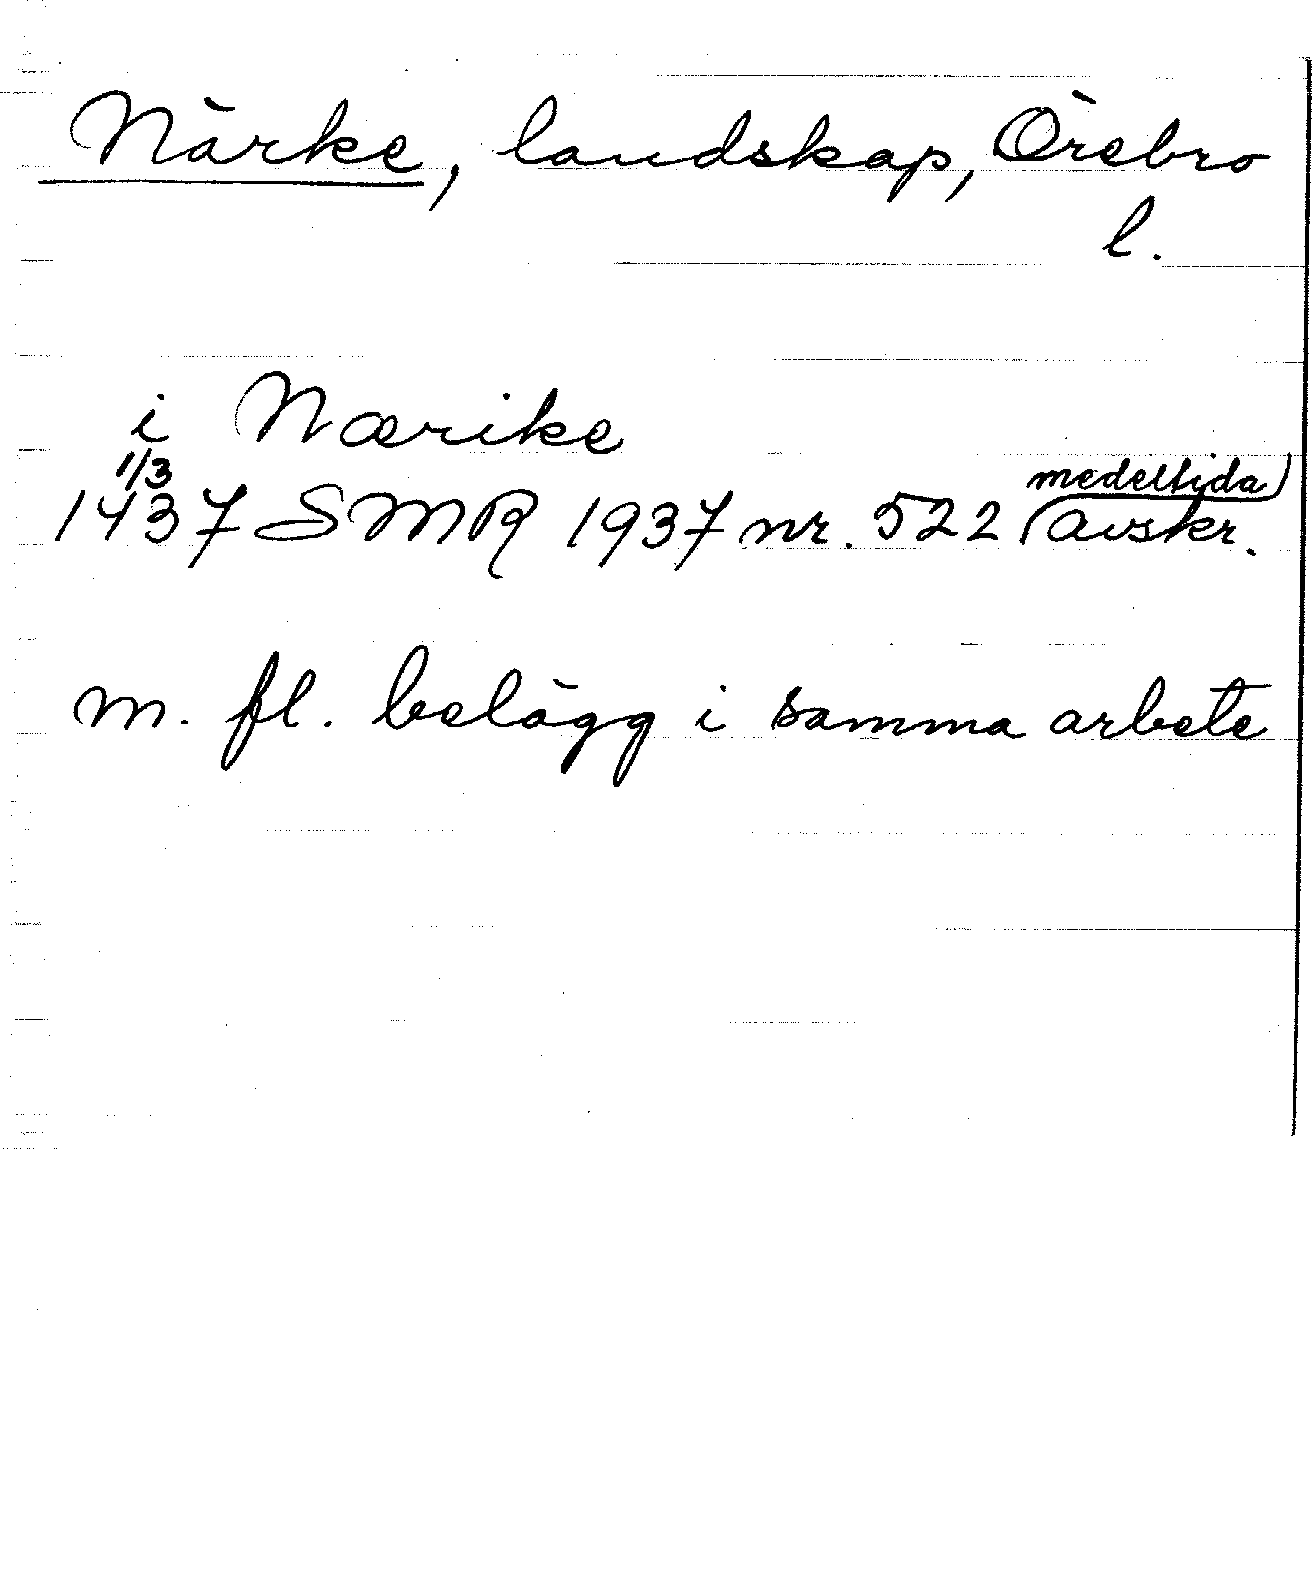 Närke, landskap, Örebro
l.
i Nærike
1/3
1437 SMR 1937 nr. 522 (medeltida) avskr.
m. fl. belägg i samma arbete